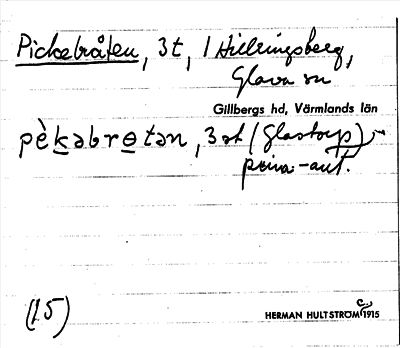 Pickebråten, 3t, / Hillringsberg,
Glava sn
Gillbergs hd, Värmlands län
pèkabrɵtən, 3 st (Glastorp)
prima-aut.
(15)
HERMAN HULTSTRÖM c 1915